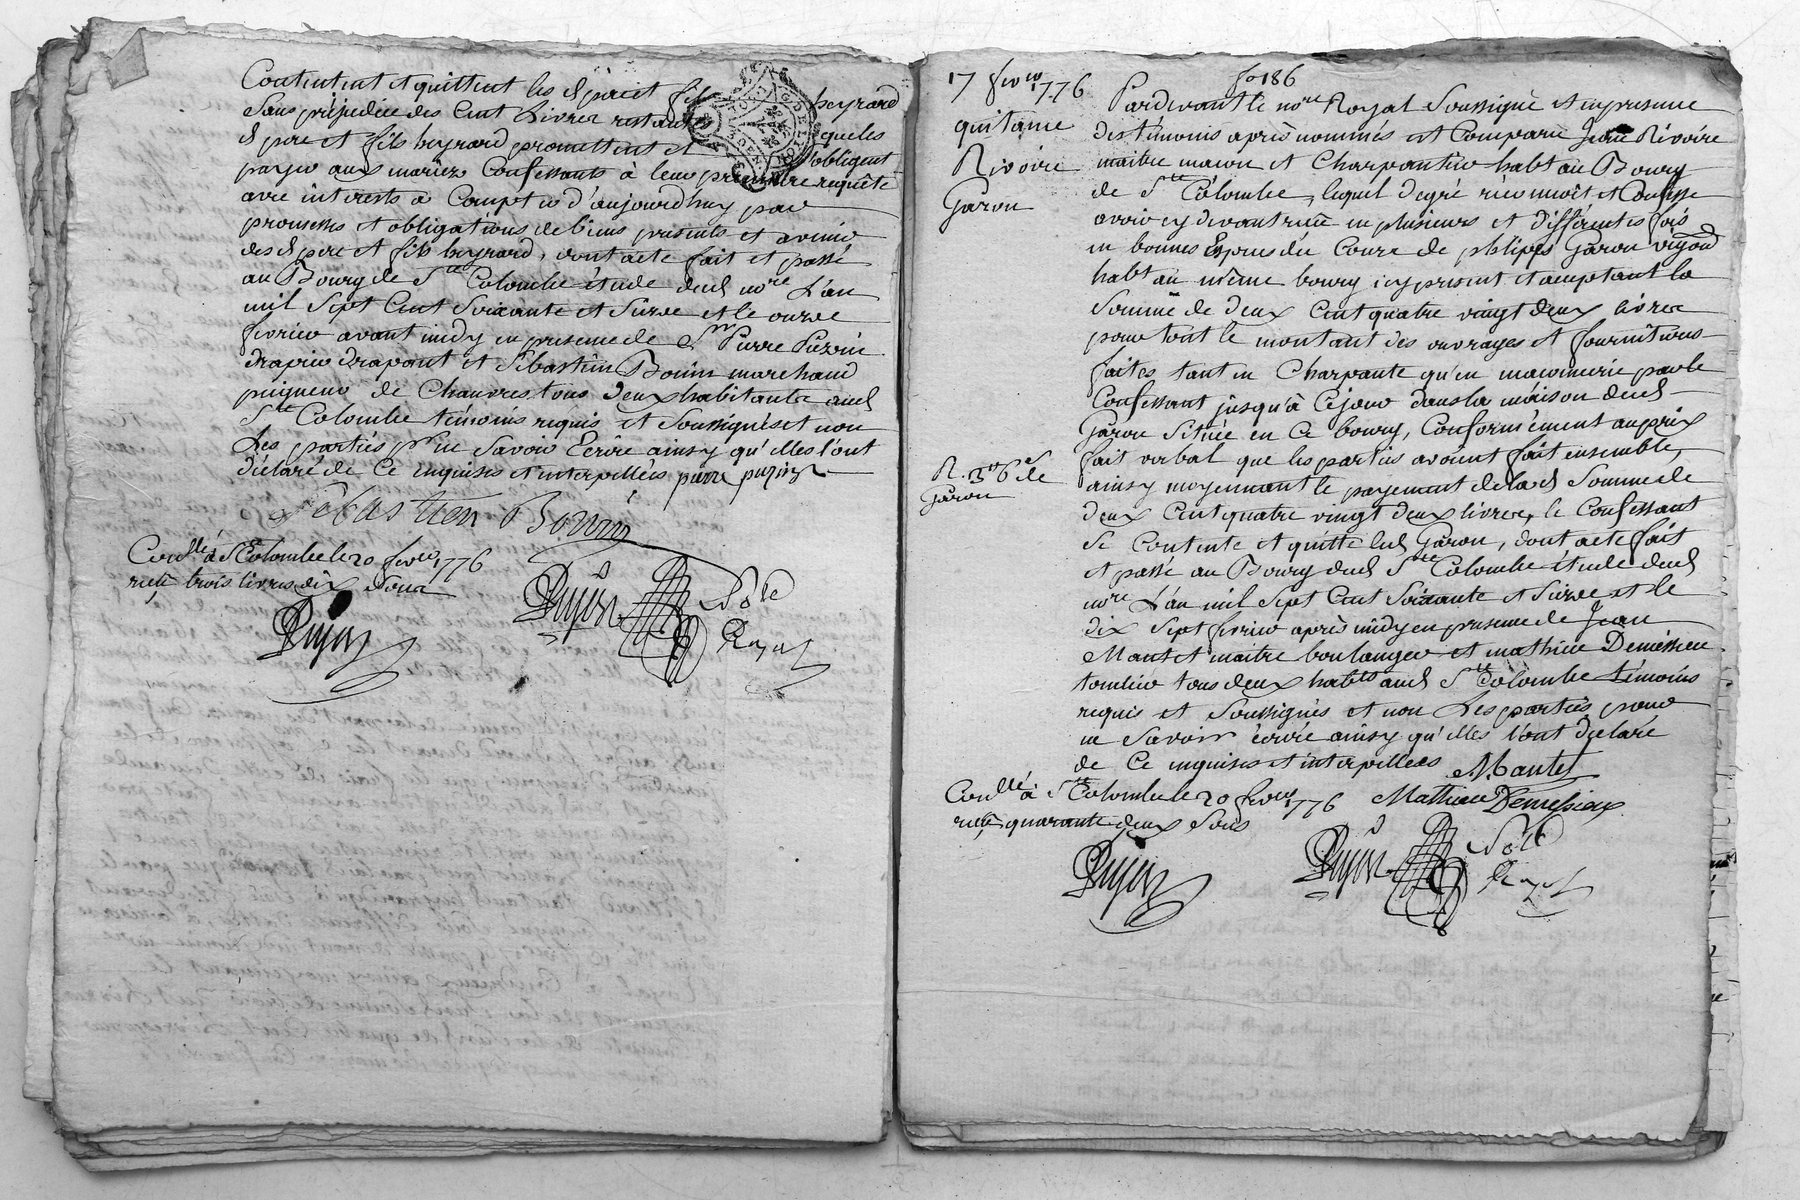 Contentent et quittent les d pere et fils heyrard
Sans préjudice des Cent Livres restantes lesquelles
d pere et fils heyrard promettent et s'obligent
payer aux mariez Confessants à leur premiere requête
avec interests a Compter d'aujourdhuy par
promesses et obligations de biens présents et avenir
des d pere et fils heyrard, dont acte fait et passé
au Bourg de Ste Colombe étude dud nore L'an
mil Sept Cent Soixante et Seize et le onze
fevrier avant midy en presence de Sr Pierre Puzin
drapier drapant et Sébastien Bonin marchand
peigneur de Chanvres tous deux habitants aud
Ste Colombe témoins requis et Soussignés et non
Les parties pr ne Savoir Ecrire ainsy qu'elles l'ont
déclaré de Ce enquises et interpellées pierre puzin
Sébastien Bonin
Conllé à Ste Colombe le 20 fevrer 1776
reçu trois livres dix Sous
Dujon
Dujon Nore
Royal
17 fevrer 1776
quitance
Rivoire
Garon
fo 186
Pardevant le nore Royal Soussigné et en presence
des témoins après nommés est Comparu Jean Rivoire
maitre macon et Charpentier habt au Bourg
de Ste Colombe, lequel de gré reconnoit et Confesse
avoir cy devant reçu en plusieurs et différentes fois
en bonnes Espèces du Cours de philippe Garon
habt au même bourg icy present et acceptant la
Somme de deux Cent quatre vingt deux livres
pour tout le montant des ouvrages et fournitures
faites tant en Charpente qu'en maconnerie par le
Confessant jusqu'à Ce jour dans la maison dud
Garon Située en Ce bourg, Conformément au prix
fait verbal que les parties avoient fait ensemble,
ainsy moyennant le payement de lad Somme de
deux Cent quatre vingt deux livres, le Confessant
Se Contente et quitte led Garon, dont acte fait
et passé au Bourg dud Ste Colombe étude dud
nore L'an mil Sept Cent Soixante et Seize et le
dix Sept fevrier après midy en presence de Jean
Mantet maitre boulanger et mathieu Demessieux
tonelier tous deux habts aud Ste Colombe témoins
requis et Soussignés et non Les parties pour
ne Savoir écrire ainsy qu'elles l'ont déclaré
de Ce enquises et interpellées Mantet
Mathieu Demessieux
Garon
Conllé à Ste Colombe le 20 fevrer 1776
reçu quarante deux Sous
Dujon
Dujon Nore
Royal